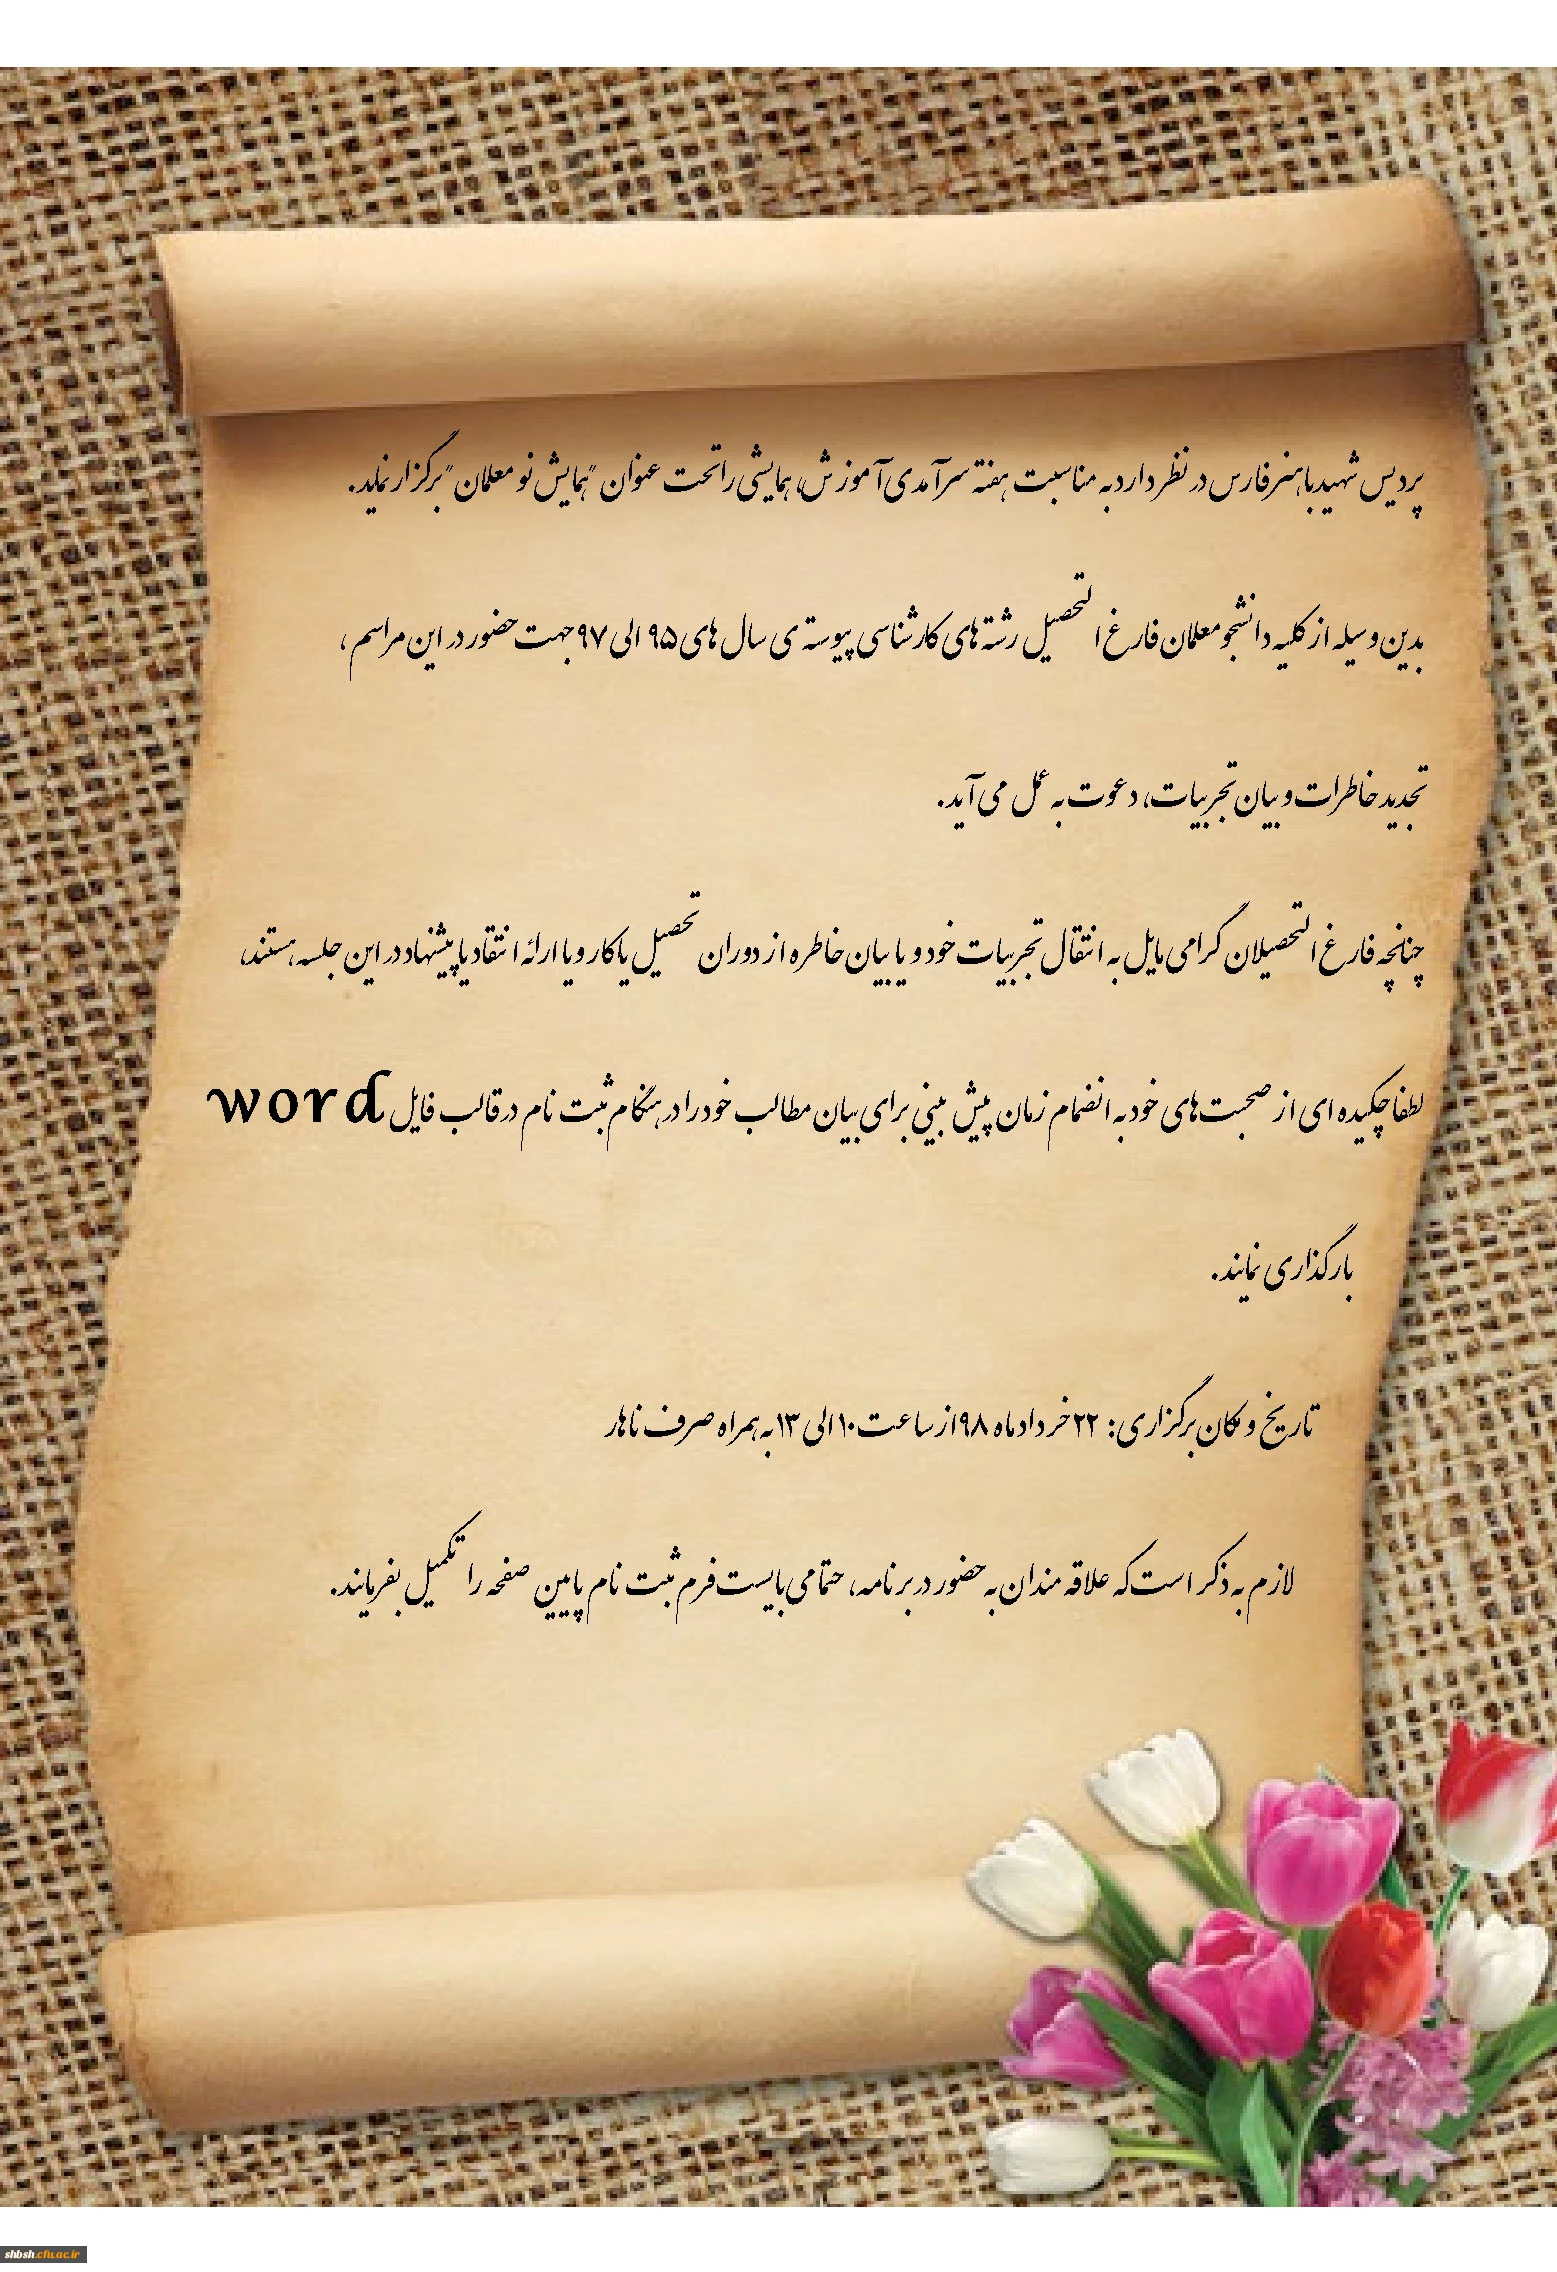 پردیس شهید باهنر فارس در نظر دارد به مناسبت هفته سرآمدی آموزش، همایشی را تحت عنوان "همایش نو معلمان" برگزار نماید.
بدین وسیله از کلیه دانشجو معلمان فارغ التحصیل رشته های کارشناسی پیوسته ی سال های ۹۵ الی ۹۷ جهت حضور در این مراسم ،
تجدید خاطرات و بیان تجربیات، دعوت به عمل می آید.
چنانچه فارغ التحصیلان گرامی مایل به انتقال تجربیات خود و یا بیان خاطره از دوران تحصیل یا کار و یا ارائه انتقاد یا پیشنهاد در این جلسه هستند،
لطفا چکیده ای از صحبت های خود به انضمام زمان پیش بینی برای بیان مطالب خود را در هنگام ثبت نام در قالب فایل word
بارگذاری نمایند.
تاریخ و مکان برگزاری: ۲۲ خرداد ماه ۹۸ از ساعت ۱۰ الی ۱۳ به همراه صرف ناهار
لازم به ذکر است که علاقه مندان به حضور در برنامه، حتما می بایست فرم ثبت نام پایین صفحه را تکمیل بفرمایند.
shbsh.cfu.ac.ir